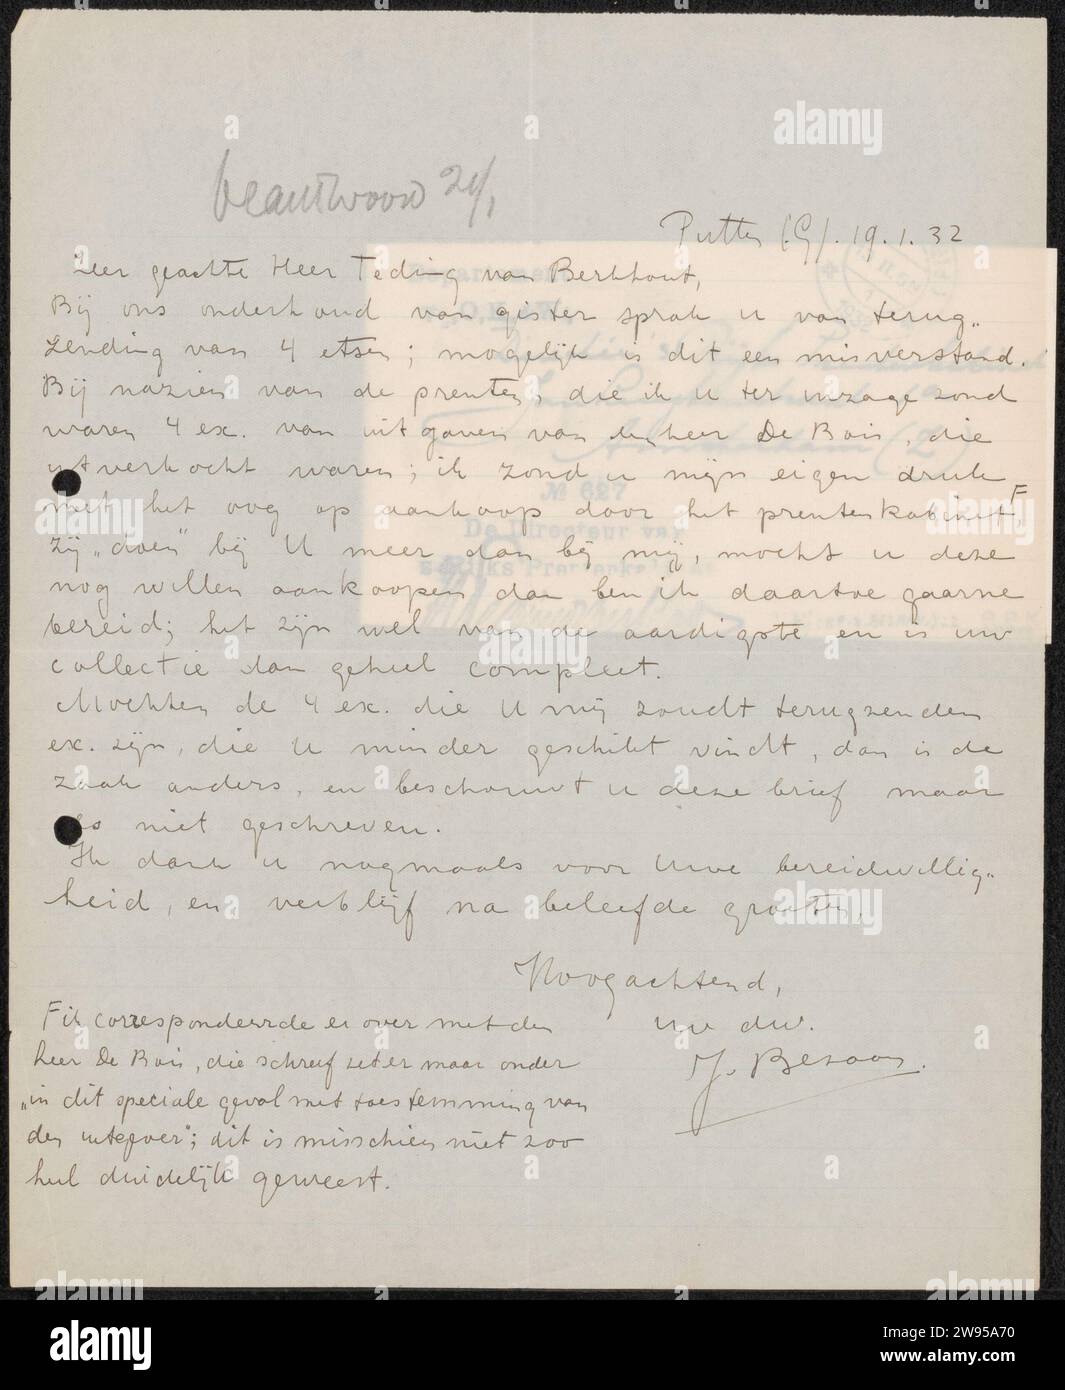 beantwoord 24/1
Putten (G). 19.1.32
Zeer geachte Heer Teding van Berkhout,
Bij ons onderhoud van gister sprak u van terug„
zending van 4 etsen; mogelijk is dit een misverstand.
Bij nazien van de prenten, die ik u ter inzage zond
waren 4 ex. van uitgaven van den heer De Bois, die
uitverkocht waren; ik zond u mijn eigen druk
met het oog op aankoop door het prentenkabinet, F
zij „doen” bij U meer dan bij mij, mocht u deze
nog willen aankoopen dan ben ik daartoe gaarne
bereid; het zijn wel van de aardigste en is uw
collectie dan geheel compleet.
Mochten de 4 ex. die U mij zoudt terugzenden
ex. zijn, die U minder geschikt vindt, dan is de
zaak anders, en beschouwt u deze brief maar
als niet geschreven.
Ik dank u nogmaals voor Uwe bereidwillig„
heid, en verblijf na beleefde groeten,
Hoogachtend,
uw dw.
F ik correspondeerde er over met den
heer De Bois, die schreef zeker maar onder
„in dit speciale geval met toestemming van
den uitgever”; dit is misschien niet zoo
heel duidelijk geweest.
No 627
De Directeur van
alamy
Image ID: 2W95A70
www.alamy.com